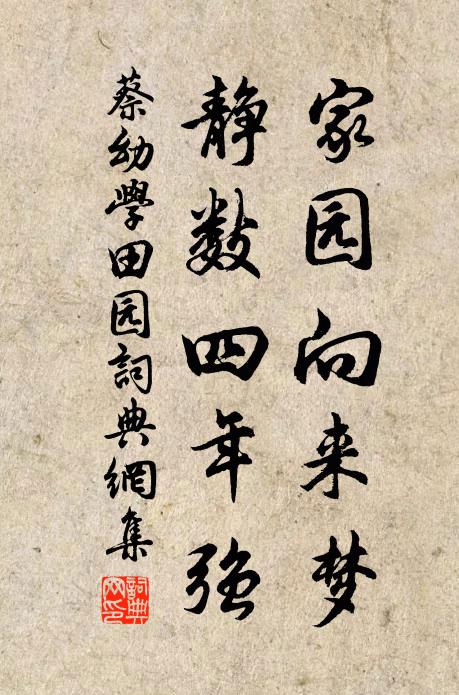 家园向来梦
静数四年强
蔡幼學田园詞典網集
詞典网印